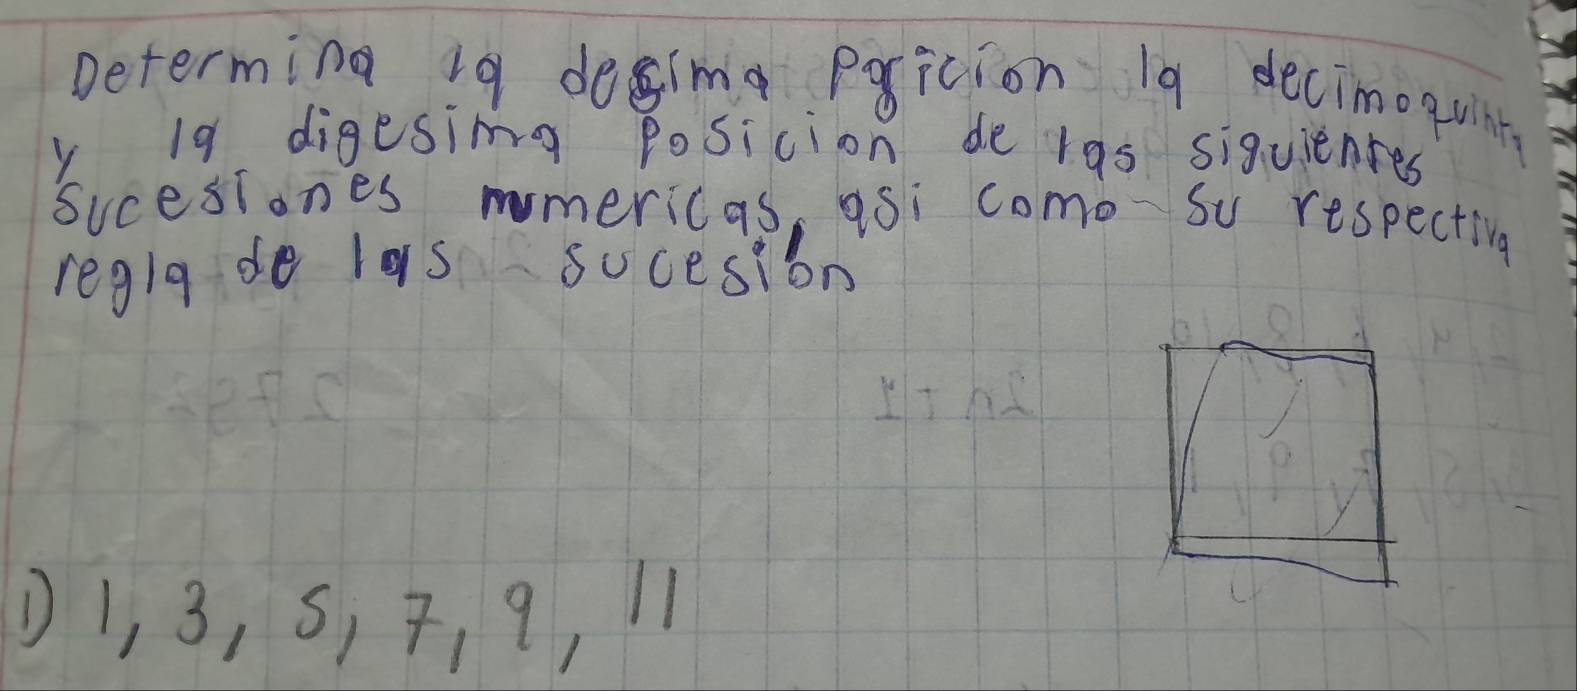 Determina la desima Posicion la decimoquinta
y la digesima Posicion de las siguientes
Sucesiones numericas, asi como su respectiva
regla de las sucesión
1) 1, 3, 5, 7, 9, 11